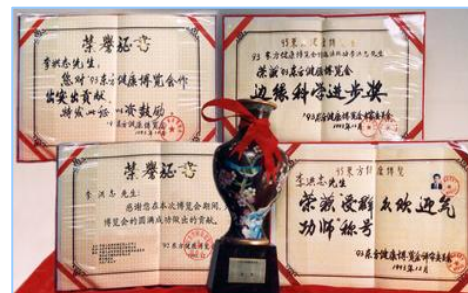 荣誉证书
李洪志先生:
您对'93东方健康博览会作
出突出贡献,
特发此证以资鼓励
'93东方健康博览会
1993年12月
'93东方健康博览会
荣获'93东方健康博览会
边缘科学进步奖
'93东方健康博览会评审委员会
1993年12月
荣誉证书
李洪志先生:
感谢您在本次博览会期间,
博览会的圆满成功做出的贡献。
'92东方健康博览
93东方健康博览
李洪志先生
荣获受群众欢迎气
功师"称号
93东方健康博览会评审委员会
1993年12月